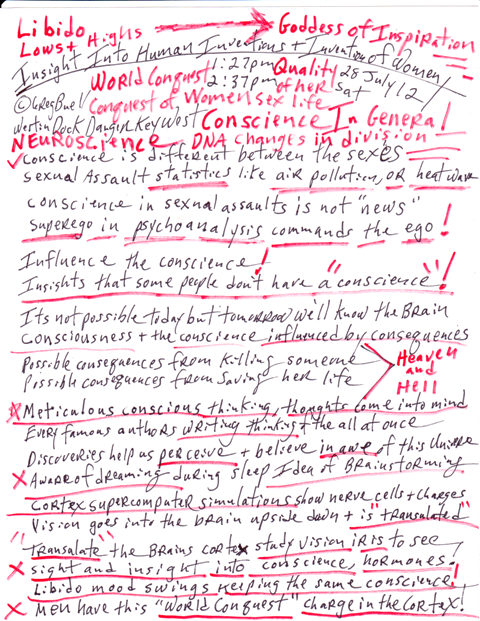 Libido → Goddess of Inspiration
Lows + Highs
Insight Into Human Inventions + Invention of Women
World Conquest 1:27pm Quality 28 July 12
2:37pm of her Sat
© Greg Buell Conquest of, Women sex life
Westin Rock Dangin Key West Conscience In General!
NEUROSCIENCE DNA changes in division
✓ Conscience is different between the sexes
sexual Assault statistics like air pollution, or heat wave
conscience in sexual assaults is not "news"
Superego in psychoanalysis commands the ego!
Influence the conscience!
Insights that some people don't have a "conscience"!
Its not possible today but tomorrow we'll know the Brain
Consciousness + the conscience influenced by consequences
Possible consequences from Killing someone
Possible consequences from Saving her life
Heaven and Hell
X Meticulous conscious thinking, thoughts come into mind
Every famous authors writing thinking + the all at once
Discoveries help us perceive + believe in awe of this Universe
X Aware of dreaming during sleep Idea of Brainstorming
Cortex supercomputer simulations show nerve cells + charges
Vision goes into the brain upside down + is "transalated"
"Transalate" the Brains cortex study vision iris to see
X sight and insight into conscience, hormones!
Libido mood swings Keeping the same conscience!
X Men have this "World Conquest" charge in the Cortex!